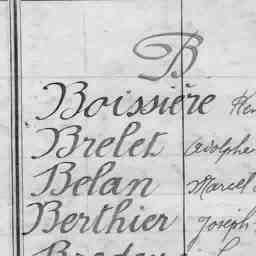 B
Boissière
Brelet Adolphe
Belan Marcel
Berthier Joseph